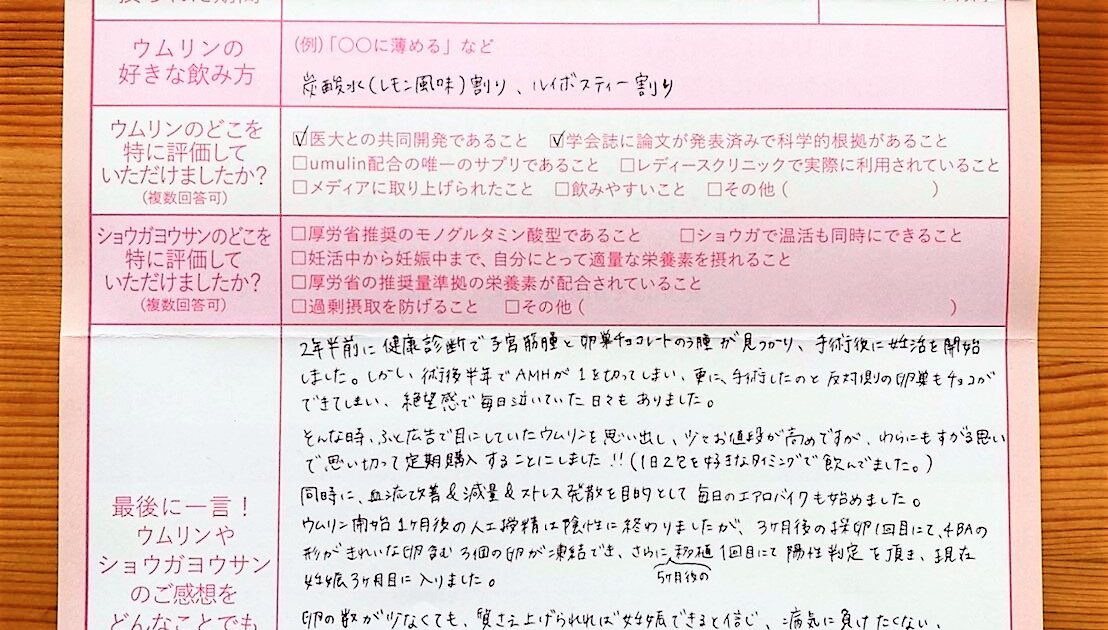 ウムリンの
好きな飲み方
(例)「〇〇に薄める」など
炭酸水(レモン風味)割り、ルイボスティー割り
ウムリンのどこを
特に評価して
いただけましたか?
(複数回答可)
☑医大との共同開発であること ☑学会誌に論文が発表済みで科学的根拠があること
□umulin配合の唯一のサプリであること □レディースクリニックで実際に利用されていること
□メディアに取り上げられたこと □飲みやすいこと □その他( )
ショウガヨウサンのどこを
特に評価して
いただけましたか?
(複数回答可)
□厚労省推奨のモノグルタミン酸型であること □ショウガで温活も同時にできること
□妊活中から妊娠中まで、自分にとって適量な栄養素を摂れること
□厚労省の推奨量準拠の栄養素が配合されていること
□過剰摂取を防げること □その他( )
最後に一言!
ウムリンや
ショウガヨウサン
のご感想を
どんなことでも
2年半前に健康診断で子宮筋腫と卵巣チョコレートのう腫が見つかり、手術後に妊活を開始
しました。しかし、術後半年でAMHが1を切ってしまい、更に、手術したのと反対側の卵巣もチョコが
できてしまい、絶望感で毎日泣いていた日々もありました。
そんな時、ふと広告で目にしていたウムリンを思い出し、少々お値段が高めですが、わらにもすがる思い
で思い切って定期購入することにしました!!(1日2包を好きなタイミングで飲んでました。)
同時に、血流改善&減量&ストレス発散を目的として毎日のエアロバイクも始めました。
ウムリン開始1ヶ月後の人工授精は陰性に終わりましたが、3ヶ月後の採卵1回目にて、4BAの
形がきれいな卵含む3個の卵が凍結でき、さらに移植1回目にて陽性判定を頂き、現在
5ヶ月後の
妊娠3ヶ月目に入りました。
卵の数が少なくても、質さえ上げられれば妊娠できると信じ、病気に負けたくない、